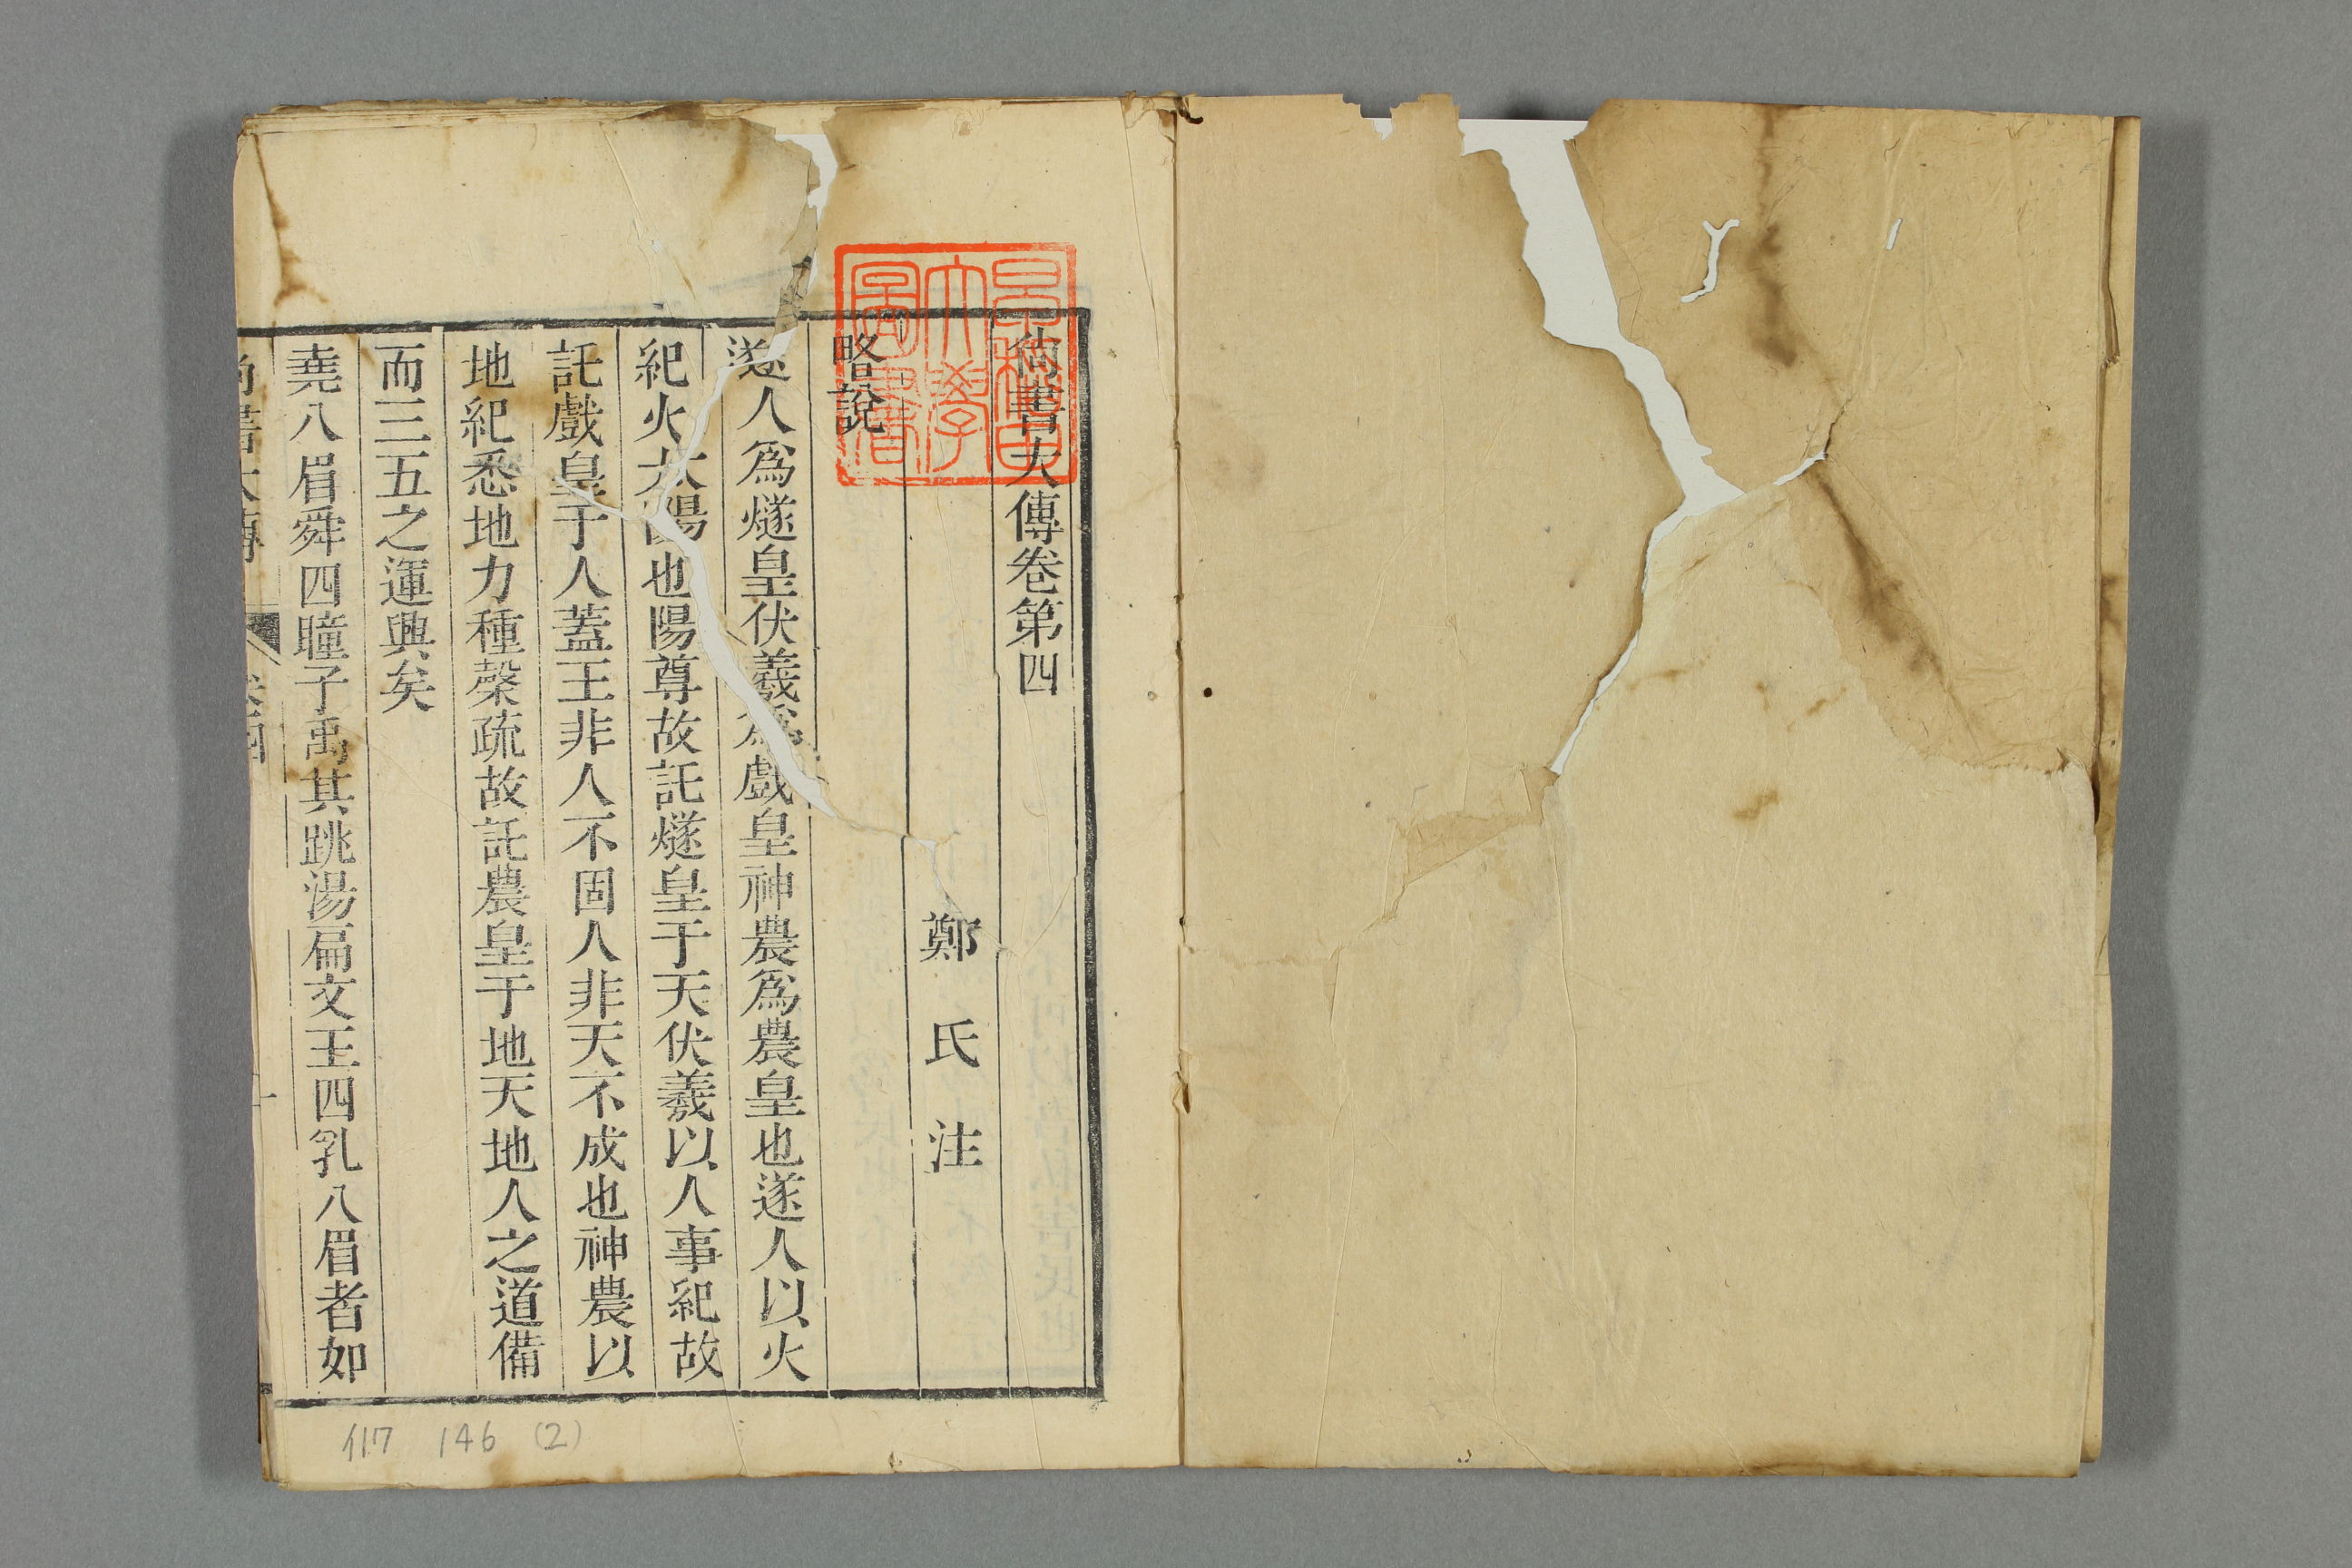 尚書大傳卷第四
鄭氏注
略說
遂人爲燧皇伏羲爲戲皇神農爲農皇也遂人以火
紀火太陽也陽尊故託燧皇于天伏羲以人事紀故
託戲皇于人蓋王非人不固人非天不成也神農以
地紀悉地力種榖疏故託農皇于地天地人之道備
而三五之運興矣
堯八眉舜四瞳子禹其跳湯扁文王四乳八眉者如
尚書大傳 卷四 一
早稲田大學圖書
117 146 (2)